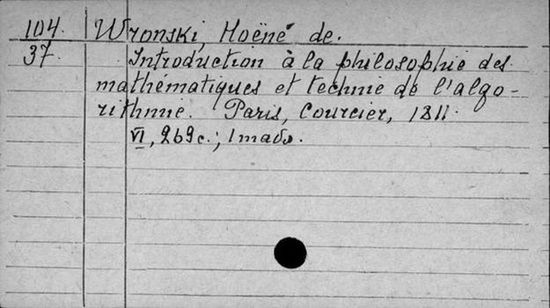 104. Wronski, Hoëné de.
37. Introduction à la philosophie des
mathématiques et technie de l'algo-
rithmie. Paris, Courcier, 1811.
VI, 269c.; 1 табл.